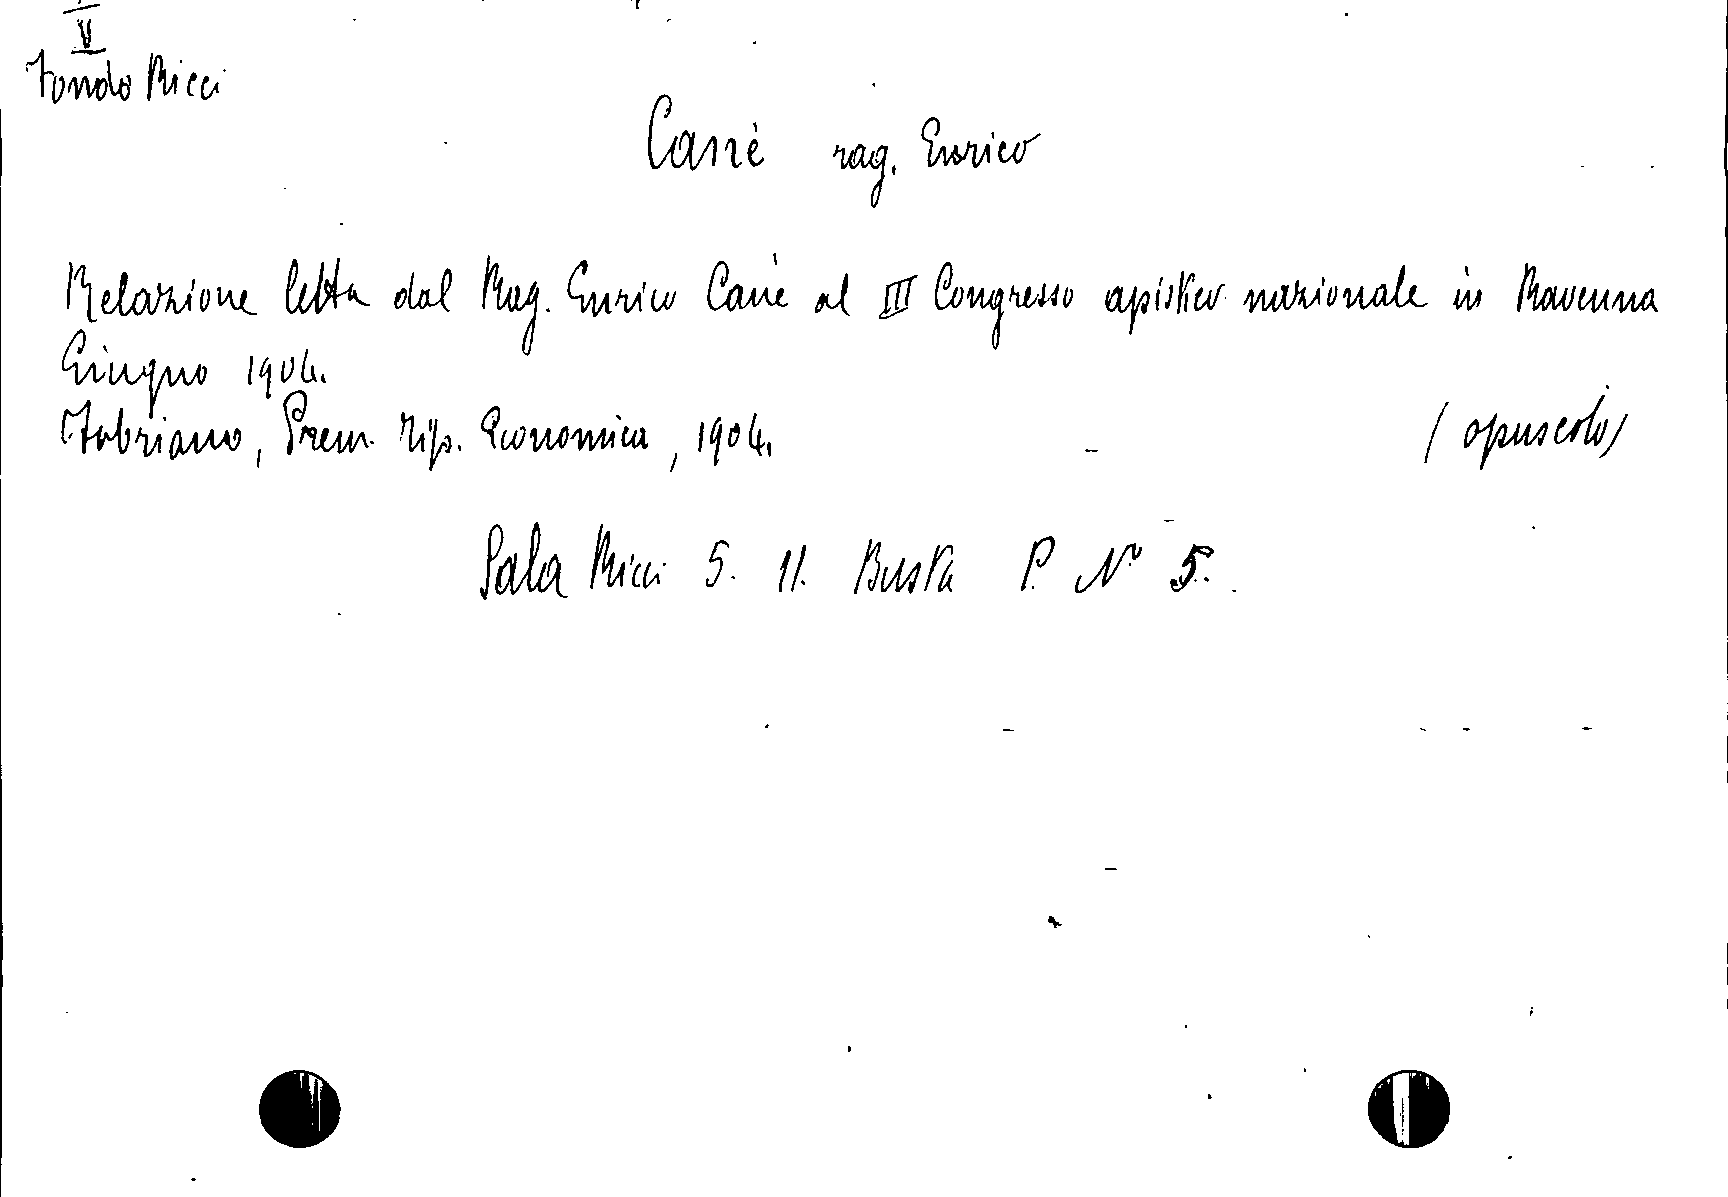 V
Fondo Ricci
Canè rag. Enrico
Relazione letta dal Rag. Enrico Canè al III Congresso apistico nazionale in Ravenna
Giugno 1904.
Fabriano, Prem. Tip. Economica, 1904. (opuscolo)
Sala Ricci S. 11. Busta P. N° 5.